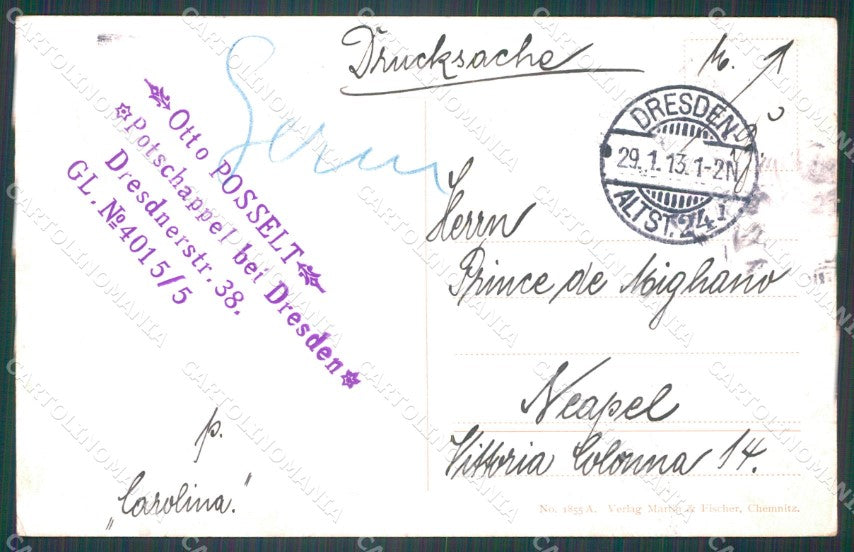 Drucksache
Otto POSSELT
Potschappel bei Dresden
Dresdnerstr. 38.
GL. No 4015/5
DRESDEN
29.1.13.1-2N
ALTST. 24
Herrn
Prince de Mighano
Neapel
Vittoria Colonna 14.
p.
„Carolina."
No. 1855 A. Verlag Martin & Fischer, Chemnitz.
CARTOLINOMANIA